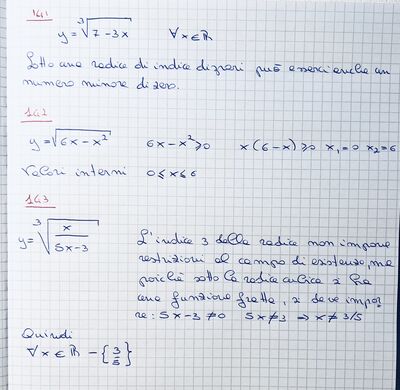 161
y = ∛(7-3x)   ∀x∈ℝ
Sotto una radice di indice dispari può esserci anche un
numero minore di zero.
162
y = √(6x-x²)   6x-x²≥0   x(6-x)≥0   x₁=0 x₂=6
Valori interni   0≤x≤6
163
y = ∛(x/(5x-3))
L'indice 3 della radice non impone
restrizioni al campo di esistenza, ma
poichè sotto la radice cubica si ha
una funzione fratta, si deve impor
re: 5x-3≠0   5x≠3 ⇒ x≠3/5
Quindi
∀x∈ℝ - {3/5}